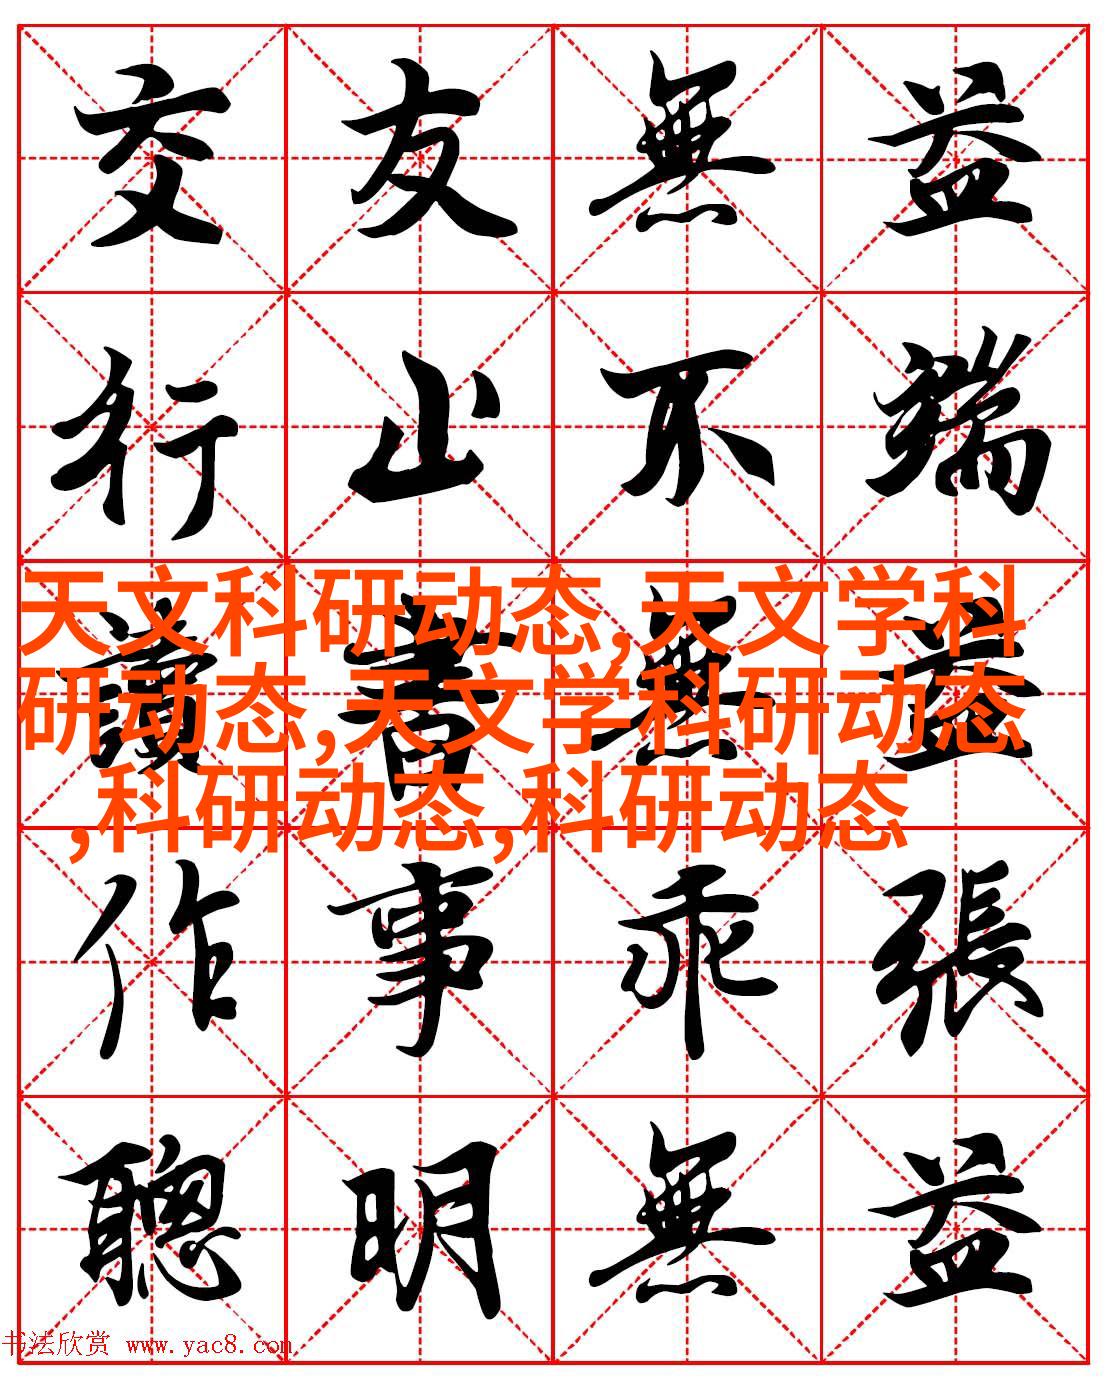 交友無益
行止不端
天文科研动态,天文学科
研动态,天文学科研动态
,科研动态,科研动态
讀書無益
作事乖張
聰明無益
书法欣赏 www.yac8.com